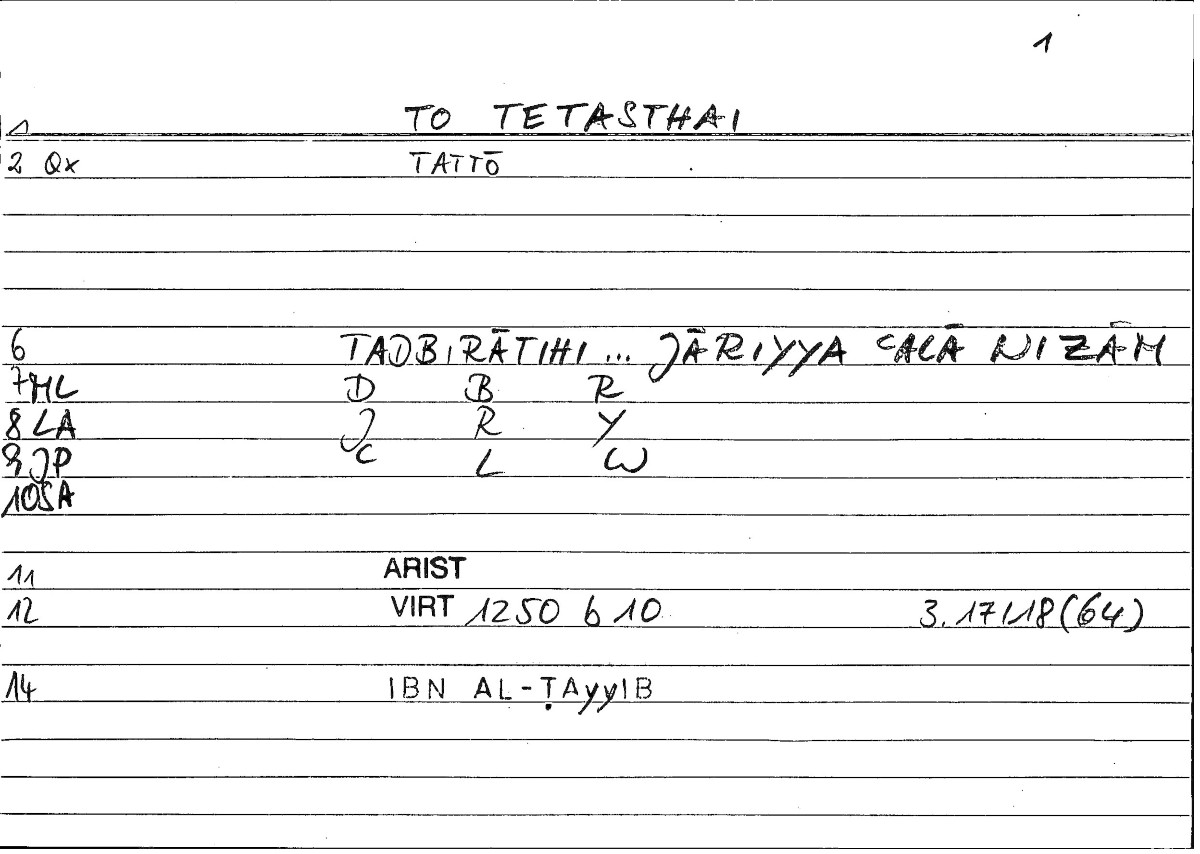 1
1 TO TETASTHAI
2 Qx TATTŌ
6 TADBIRĀTIHI ... JĀRIYYA ᶜALĀ NIZĀM
7ML D B R
8 LA J R Y
9 JP ᶜ L W
10SA
11 ARIST
12 VIRT 1250 b 10 3.17/18(64)
14 IBN AL-ṬAyyIB